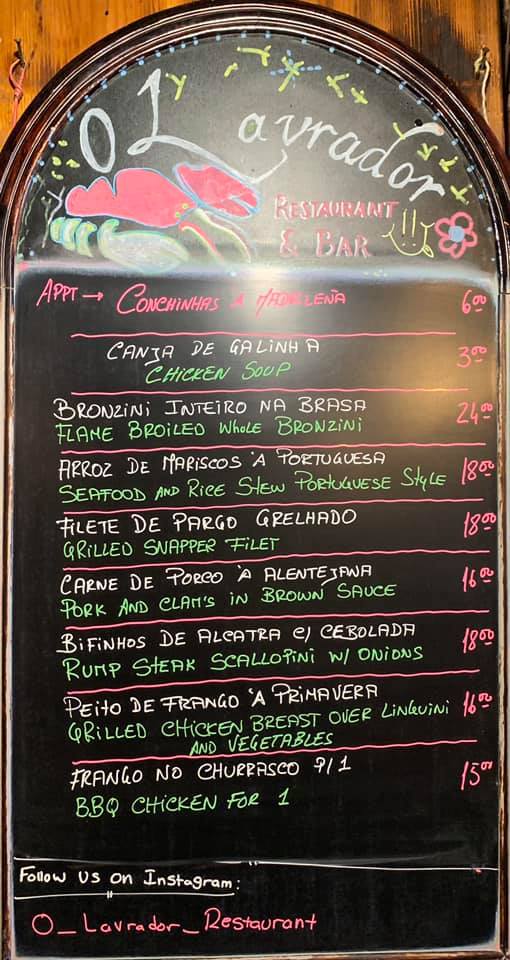 O Lavrador
RESTAURANT
& BAR
APPT → CONCHINHAS A MADRILEÑA 6.00
CANJA DE GALINHA 3.00
CHICKEN SOUP
BRONZINI INTEIRO NA BRASA 24.00
FLAME BROILED WHOLE BRONZINI
ARROZ DE MARISCOS À PORTUGUESA 18.00
SEAFOOD AND RICE STEW PORTUGUESE STYLE
FILETE DE PARGO GRELHADO 18.00
GRILLED SNAPPER FILET
CARNE DE PORCO À ALENTEJANA 16.00
PORK AND CLAM'S IN BROWN SAUCE
BIFINHOS DE ALCATRA C/ CEBOLADA 18.00
RUMP STEAK SCALLOPINI W/ ONIONS
PEITO DE FRANGO À PRIMAVERA 16.00
GRILLED CHICKEN BREAST OVER LINGUINI
AND VEGETABLES
FRANGO NO CHURRASCO P/1 15.00
BBQ CHICKEN FOR 1
Follow us on Instagram:
O_Lavrador_Restaurant